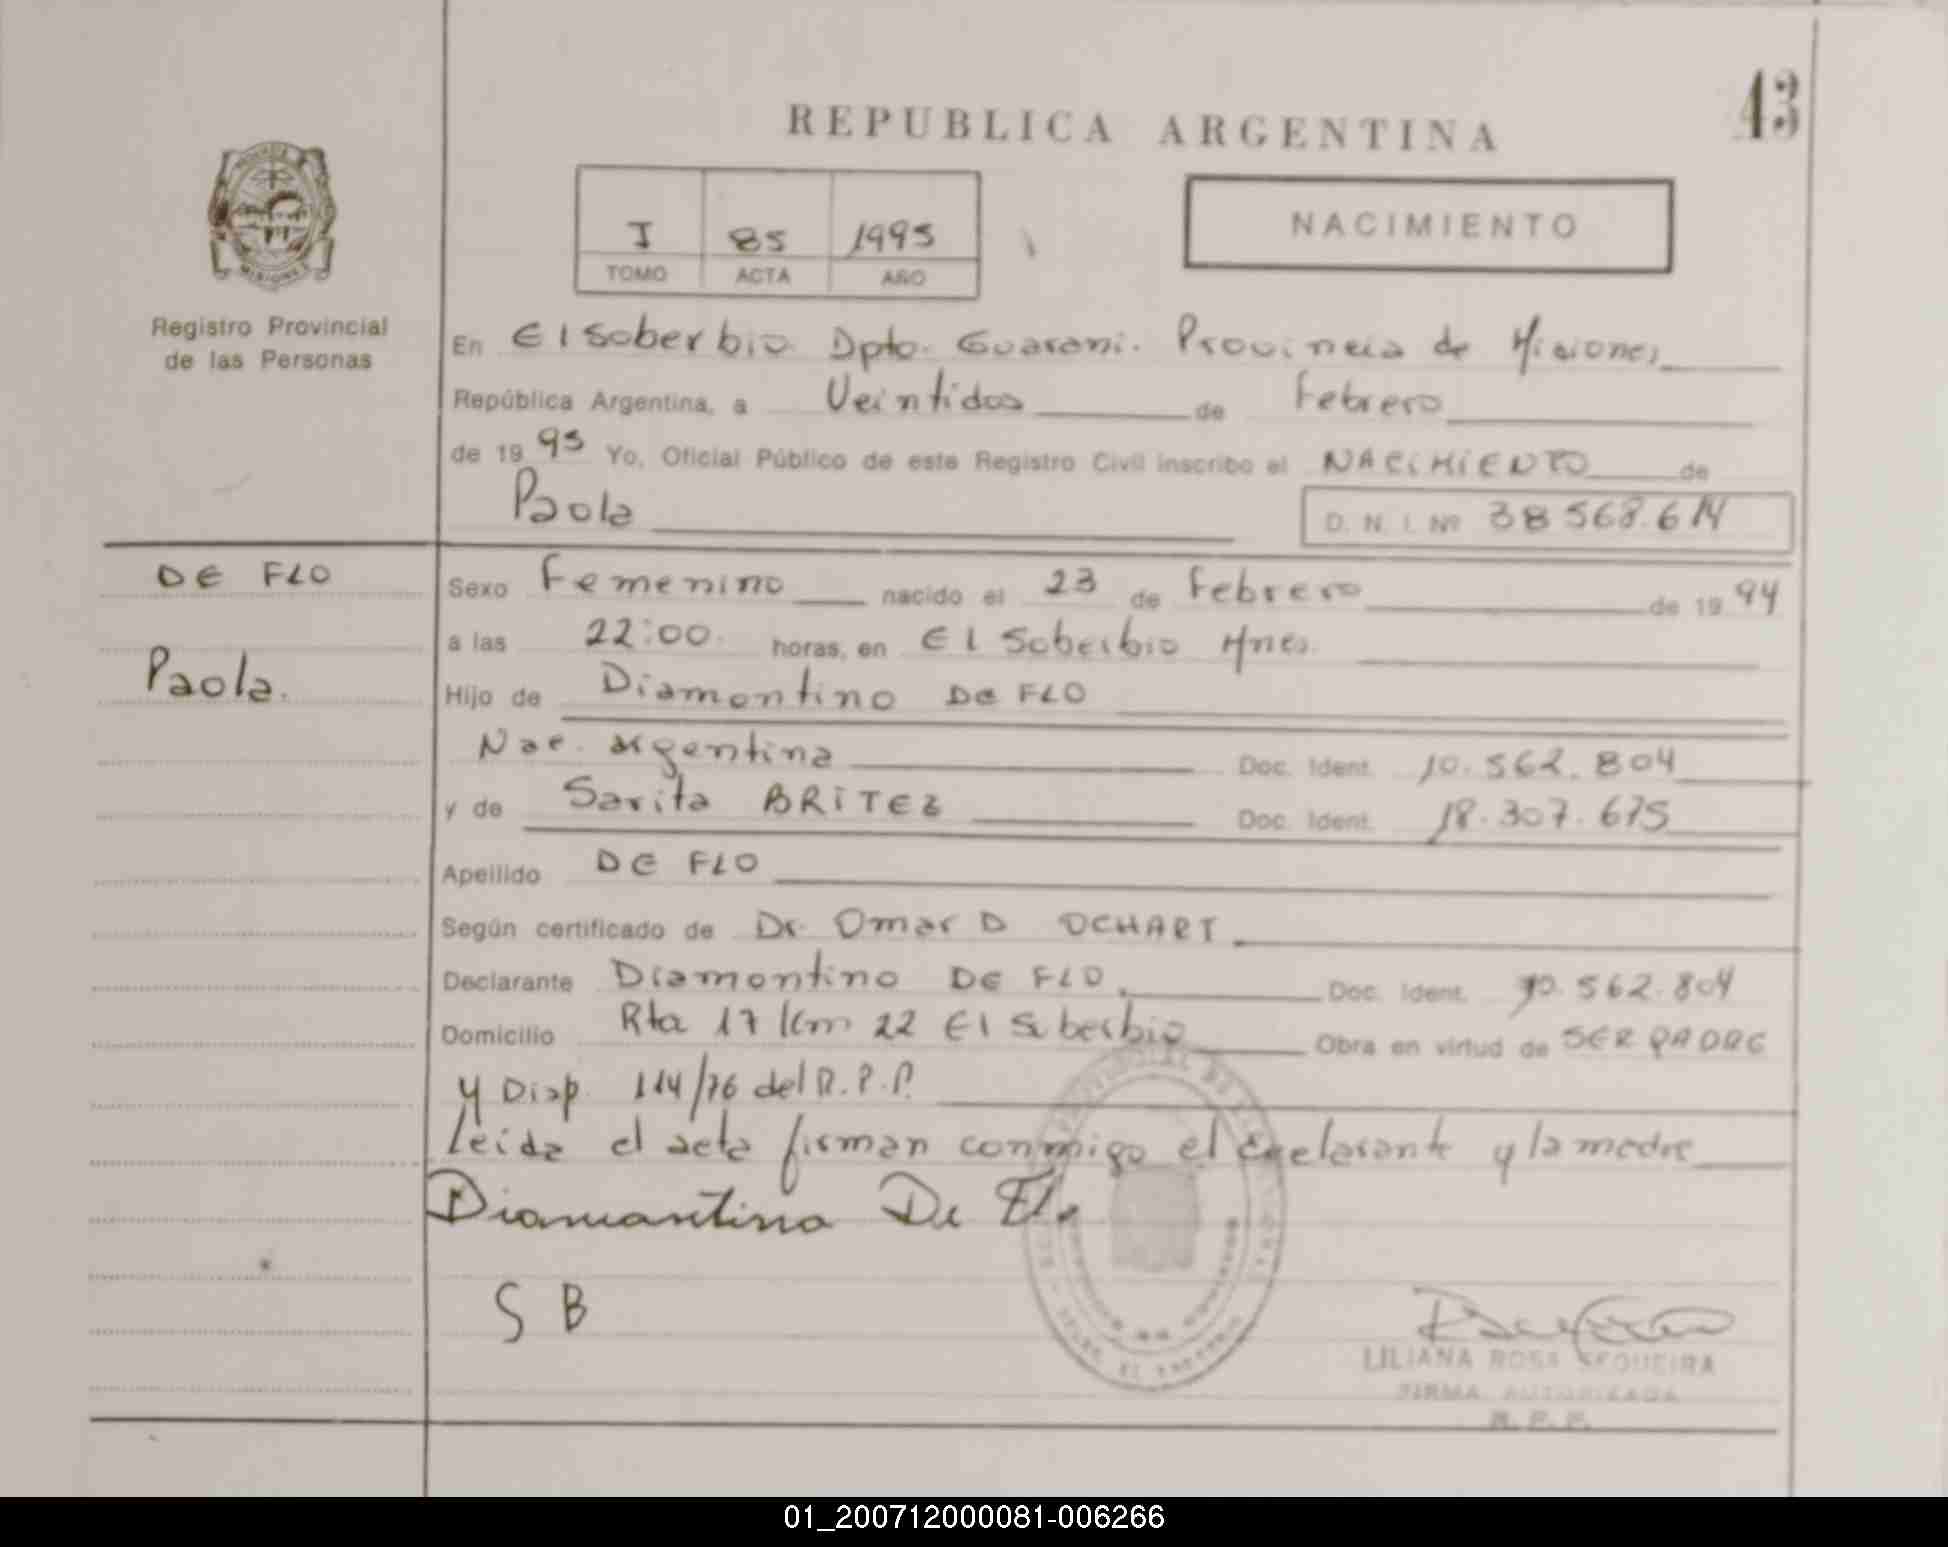 43
REPUBLICA ARGENTINA
I 85 1995
TOMO ACTA AÑO
NACIMIENTO
Registro Provincial
de las Personas
En El Soberbio. Dpto. Guarani. Provincia de Misiones
República Argentina, a Veintidos de Febrero
de 1995 Yo, Oficial Público de este Registro Civil inscribo el NACIMIENTO de
Paola D. N. I. Nº 38568.614
DE FLO
Paola.
Sexo Femenino nacido el 23 de Febrero de 1994
a las 22:00. horas, en El Soberbio Mnes.
Hijo de Diamontino DE FLO
Nac. argentina Doc. Ident. 10.562.804
y de Sarita BRITEZ Doc. Ident. 18.307.675
Apellido DE FLO
Según certificado de Dr. Omar D OCHART
Declarante Diamontino DE FLO. Doc. Ident. 10.562.804
Domicilio Rta 17 Km 22 El Soberbio Obra en virtud de SER PADRE
y Disp. 114/76 del R.P.P.
Leida el acta firman conmigo el declarante y la madre
Diamantino De Flo
S B
LILIANA ROSA SEQUEIRA
FIRMA AUTORIZADA
R. P. P.
01_200712000081-006266